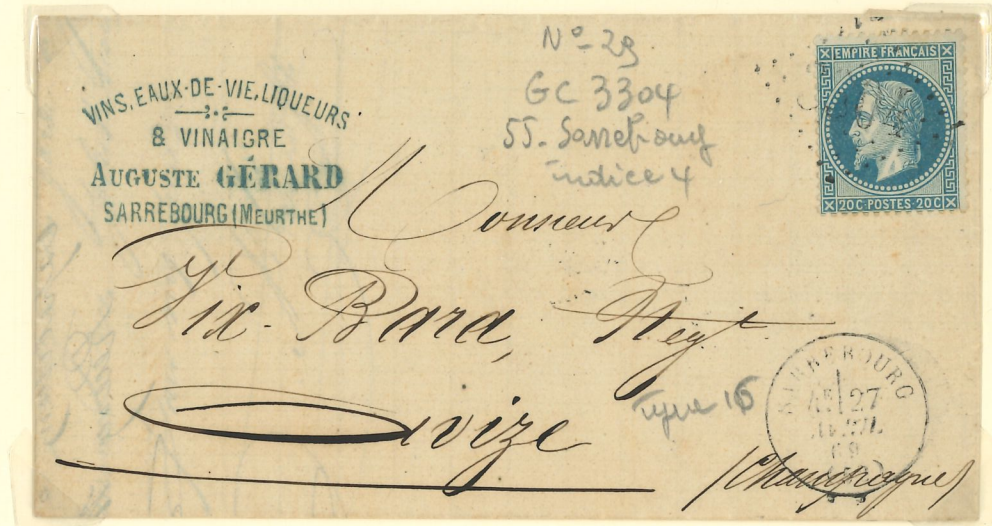 VINS, EAUX-DE-VIE, LIQUEURS
& VINAIGRE
AUGUSTE GÉRARD
SARREBOURG (MEURTHE)
No 29
GC 3304
55. Sarrebourg
indice 4
EMPIRE FRANÇAIS
20C-POSTES-20C
Monsieur
Vix-Bara, Negt
Avize
(Champagne)
Type 16
SARREBOURG
27
AVRIL
69